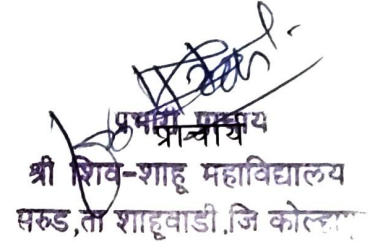 प्रभारी प्राचार्य
प्राचार्य
श्री शिव-शाहू महाविद्यालय
सरुड,ता शाहूवाडी,जि कोल्हापूर